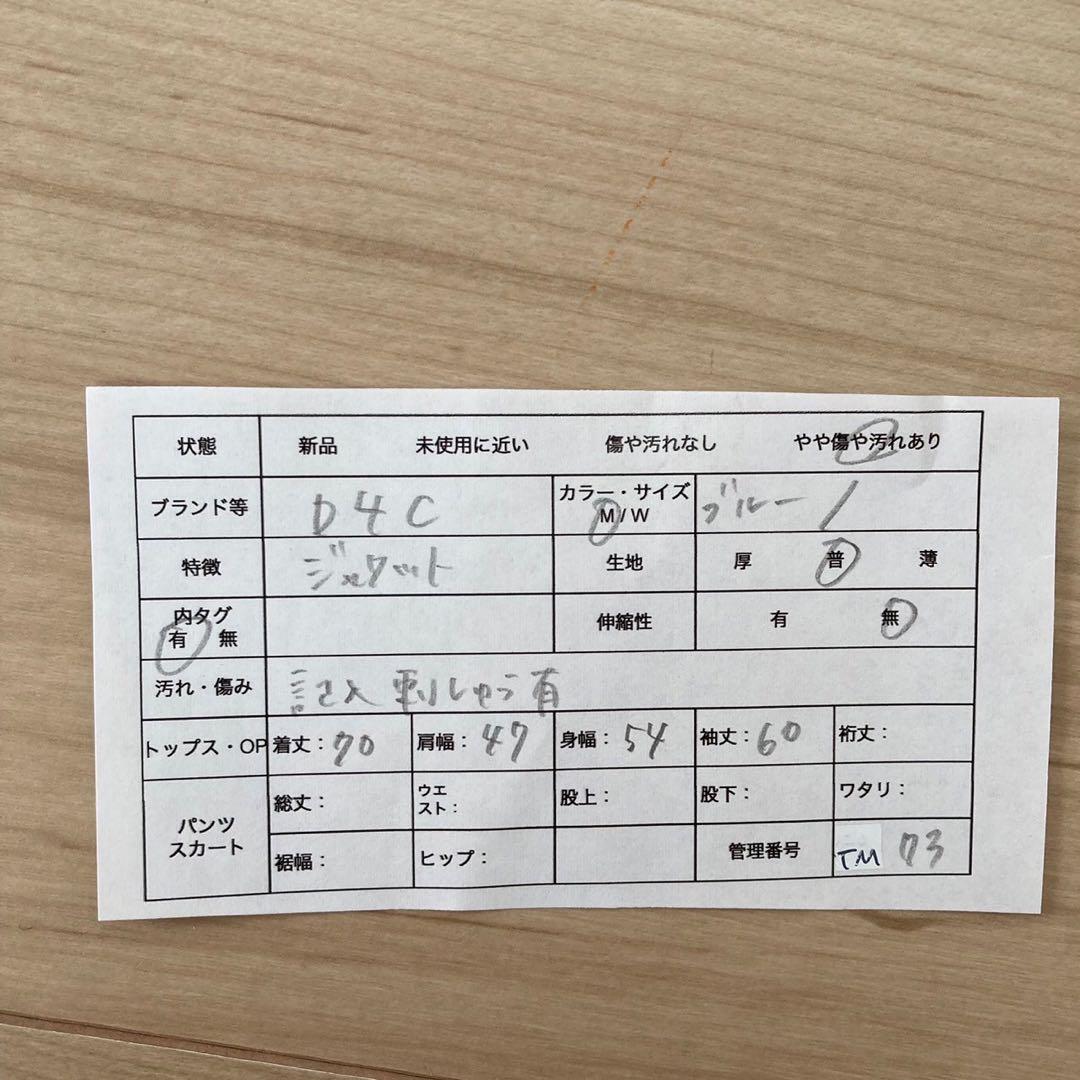 状態 新品 未使用に近い 傷や汚れなし やや傷や汚れあり
ブランド等 D4C カラー・サイズ M/W ブルー /
特徴 ジャケット 生地 厚 普 薄
内タグ 有 無 伸縮性 有 無
汚れ・傷み 記入刺しゅう有
トップス・OP 着丈:70 肩幅:47 身幅:54 袖丈:60 裄丈:
パンツ スカート 総丈: ウエスト: 股上: 股下: ワタリ:
裾幅: ヒップ: 管理番号 TM 73